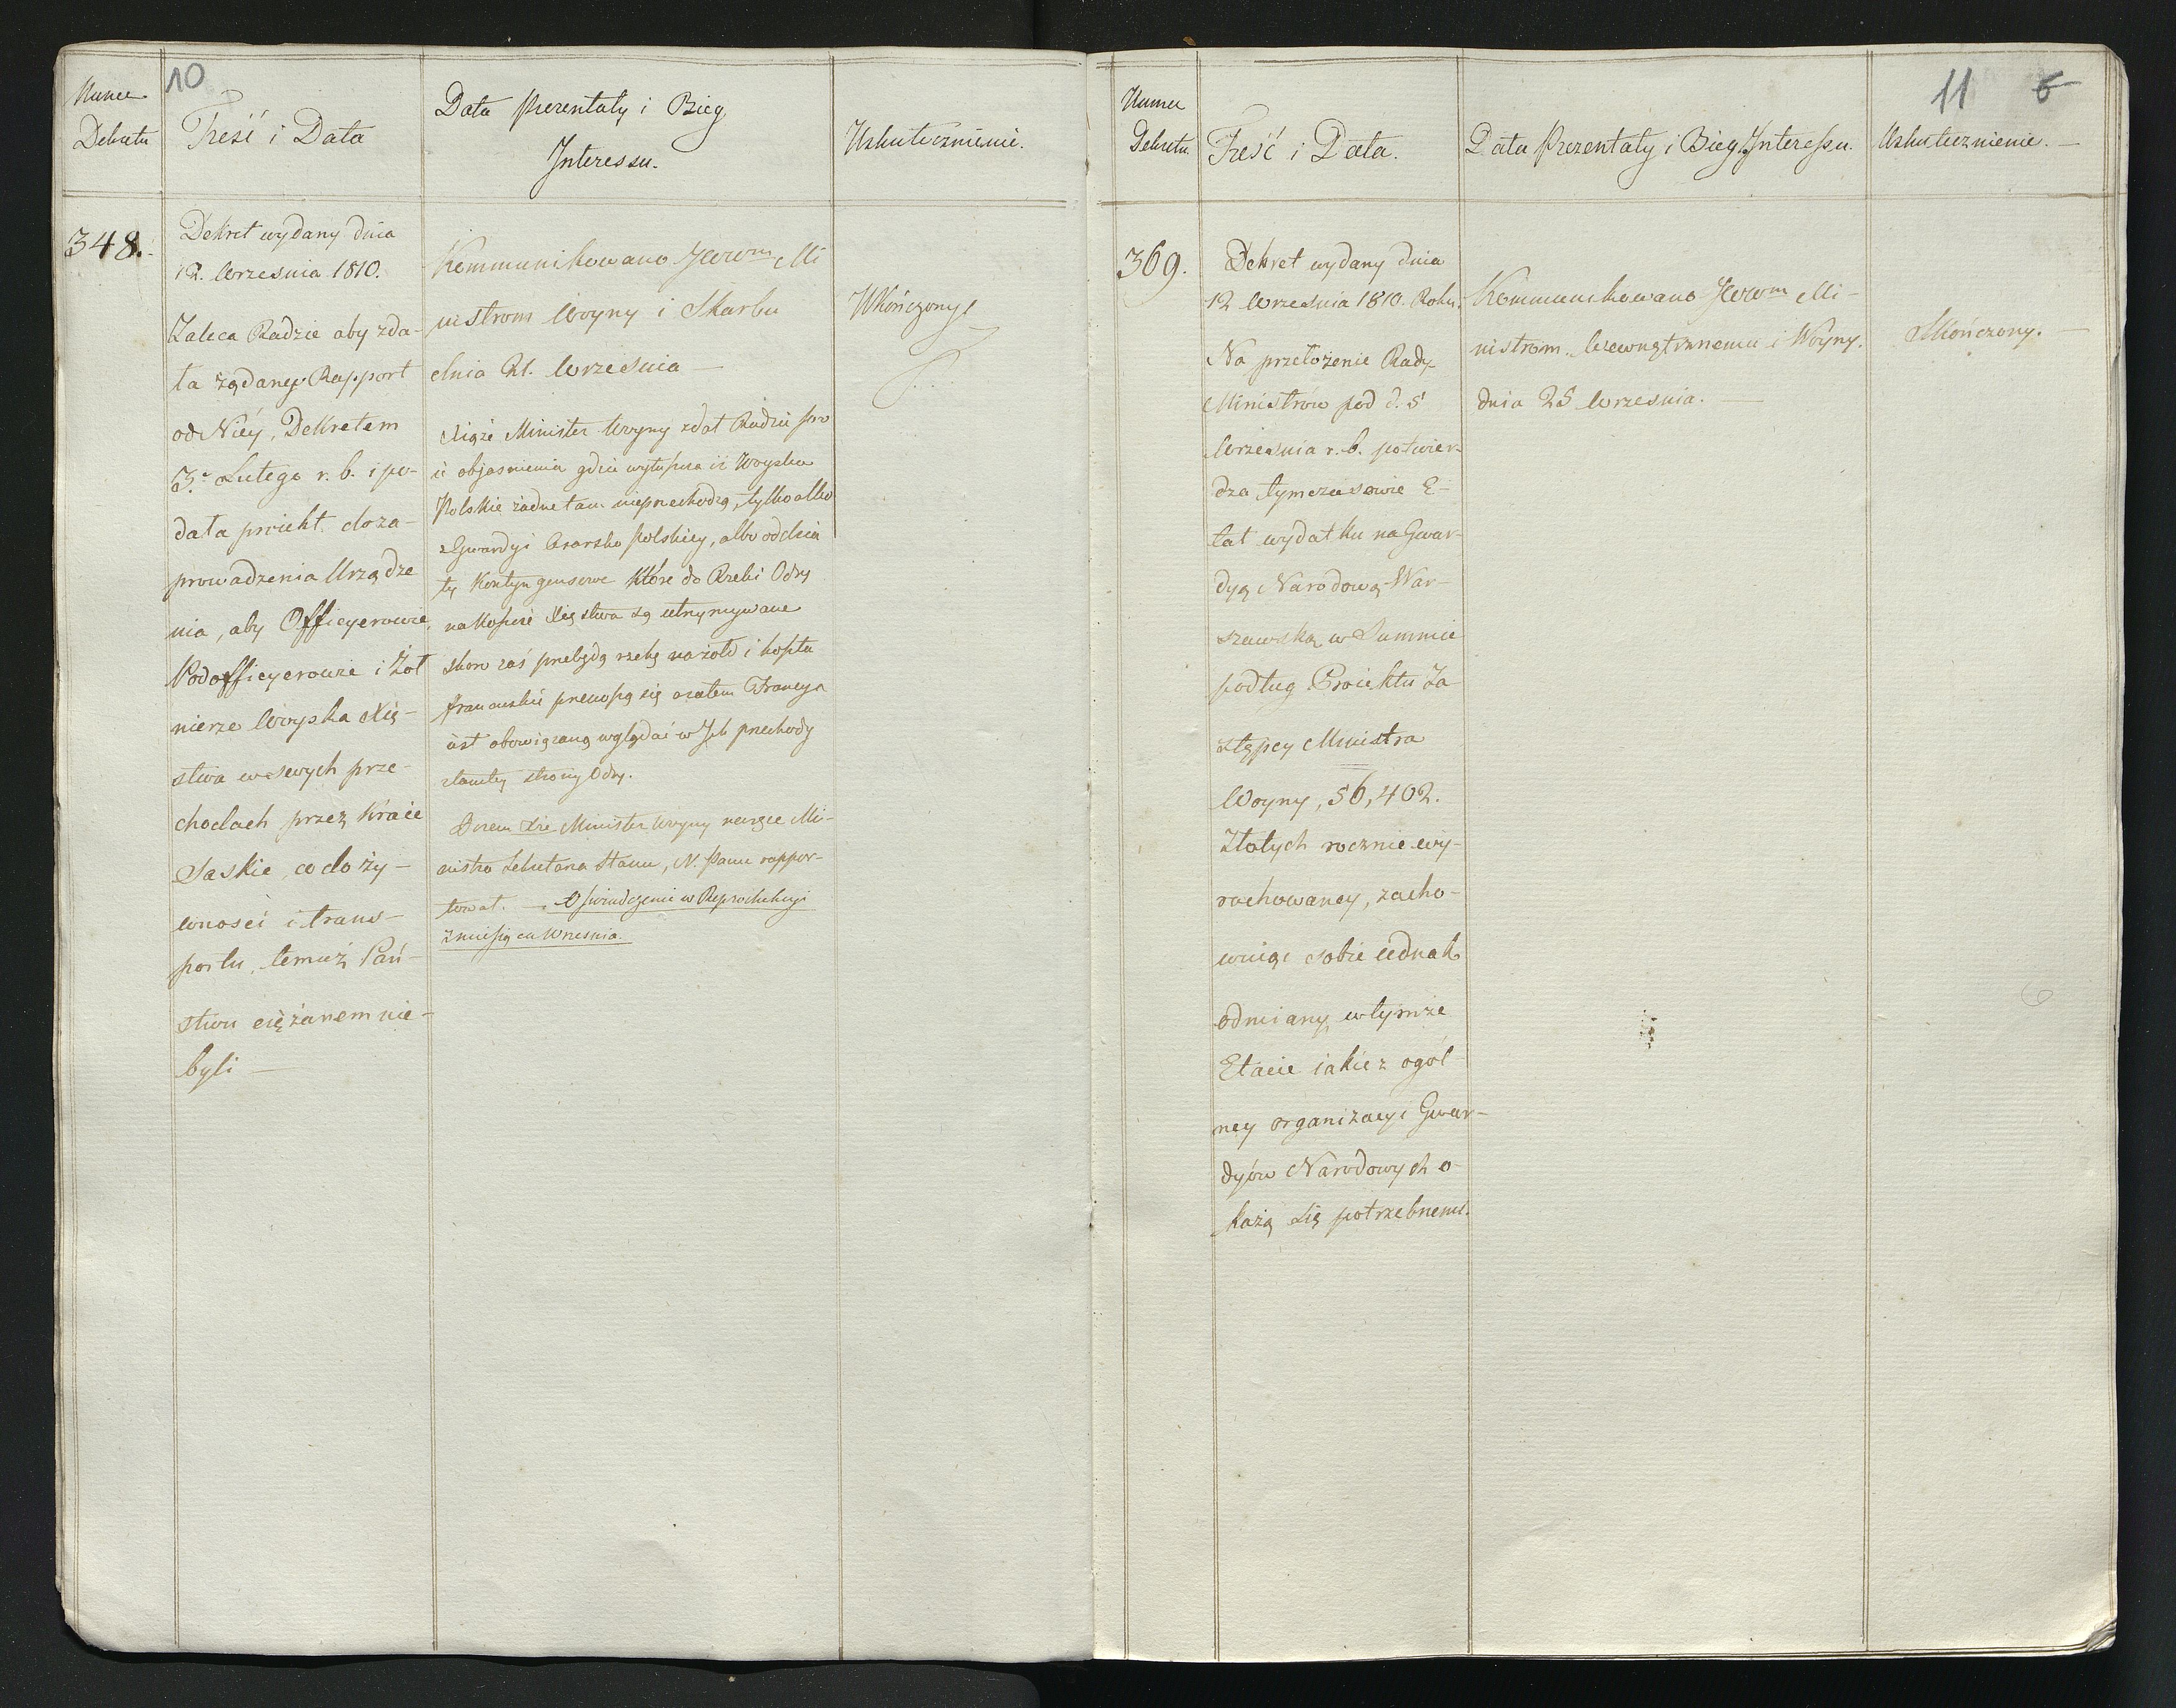 10
Numer
Dekretu
Treść i Data
Data Prezentaty i Bieg
Interessu.
Uskutecznienie.
348.
Dekret wydany dnia
12. Września 1810.
Zaleca Radzie aby zda-
ła żądany Rapport
od Niéy, Dekretem
3. Lutego r. b. i po-
dała proiekt do za-
prowadzenia Urządze
nia, aby Officyerowie,
Podofficyerowie i Żoł
nierze Woyska Xię-
stwa w swych prze-
chodach przez Kraie
Saskie, co do ży-
wności i trans-
portu, temuż Pań-
stwu ciężarem nie-
byli —
Kommunikowano JWWm Mi
nistrom Woyny i Skarbu
dnia 21. Września —
Xiąże Minister Woyny zdał Radzie
objasnienia gdzie iż Woyska
Polskie żadne tam nieprzechodzą, tylko albo
z Gwardyi Cesarsko polskiey, albo oddzia
ły Kontyngensowe które do Rzeki Odry
na koszcie Xięstwa są utrzymywane
skoro zaś przebędą rzekę na żołd i koszta
francuskie przenoszą się a zatem Francya
iest obowiązaną wglądać w Ich przechody
z tamtey strony Odry.
Xże Minister Woyny na ręce Mi-
nistra Sekretarza Stanu, N. Panu rappor-
tował. — Oświadczenie w
z miesiąca Września.
Ukończony
11 6
Numer
Dekretu
Treść i Data.
Data Prezentaty i Bieg Interessu.
Uskutecznienie. —
369.
Dekret wydany dnia
12 Września 1810. Roku.
Na przełożenie Rady
Ministrów pod d. 5
Września r. b. potwier-
dza tymczasowie E-
tat wydatku na Gwar-
dyą Narodową War-
szawską w Summie
podług Proiektu Za
stępcy Ministra
Woyny, 56,402.
Złotych rocznie wy-
rachowaney, zacho-
wuiąc sobie iednak
odmiany w tymże
Etacie iakie z ogól
ney organizacyi Gwar-
dyów Narodowych o-
każą się potrzebnemi.
Kommunikowano JWWm Mi-
nistrom Wewnętrznemu i Woyny.
dnia 25 Września. —
Skończony. —
6